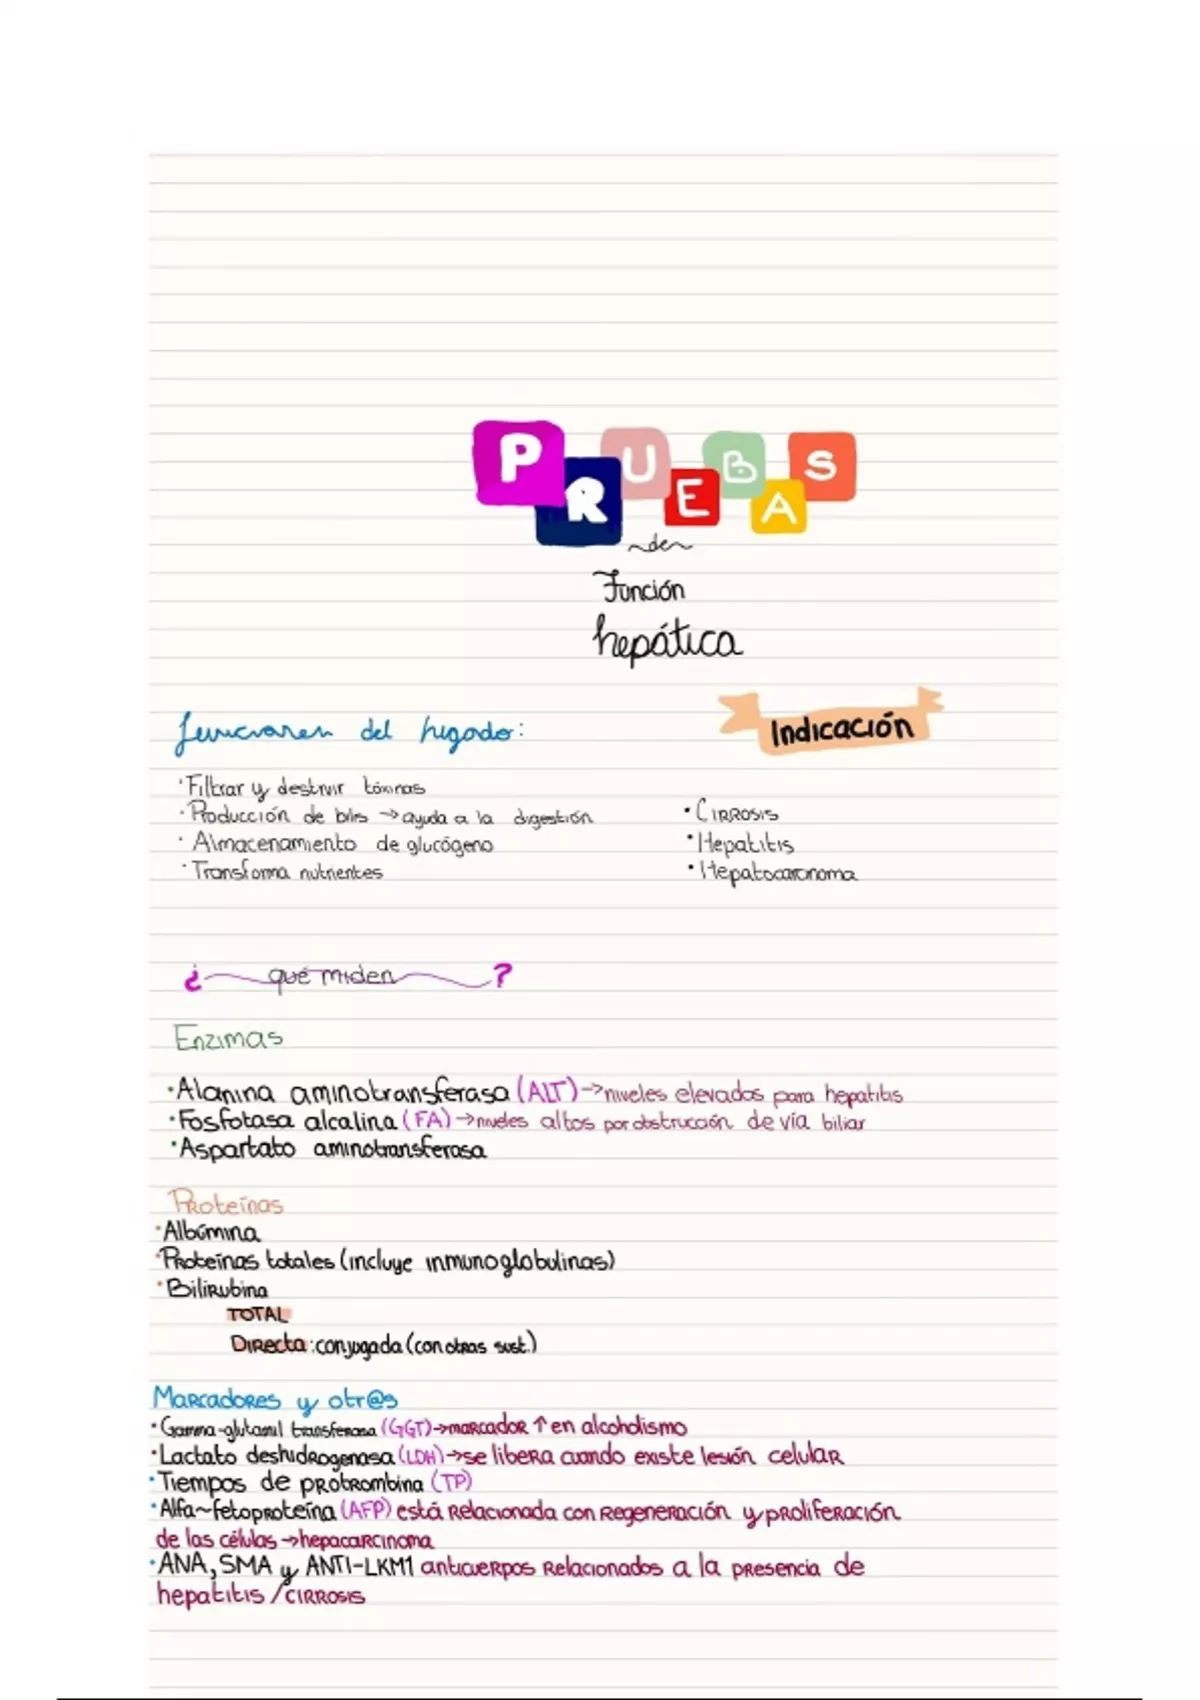 PRUEBAS
~de~
Función
hepática
funciones del hígado:
Indicación
·Filtrar y destruir tóxinas
·Producción de bilis →ayuda a la digestión
·Almacenamiento de glucógeno
·Transforma nutrientes
·Cirrosis
·Hepatitis
·Hepatocarcinoma
¿qué miden?
Enzimas
·Alanina aminotransferasa (ALT)→niveles elevados para hepatitis
·Fosfotasa alcalina (FA)→niveles altos por obstrucción de vía biliar
·Aspartato aminotransferasa
Proteínas
·Albúmina
·Proteínas totales (incluye inmunoglobulinas)
·Bilirubina
TOTAL
Directa:conjugada (con otras sust.)
Marcadores y otr@s
·Gamma-glutamil transferasa (GGT)→marcador ↑ en alcoholismo
·Lactato deshidrogenasa (LDH)→se libera cuando existe lesión celular
·Tiempos de protrombina (TP)
·Alfa~fetoproteína (AFP) está relacionada con regeneración y proliferación
de las células →hepacarcinoma
·ANA, SMA y ANTI-LKM1 anticuerpos relacionados a la presencia de
hepatitis /cirrosis